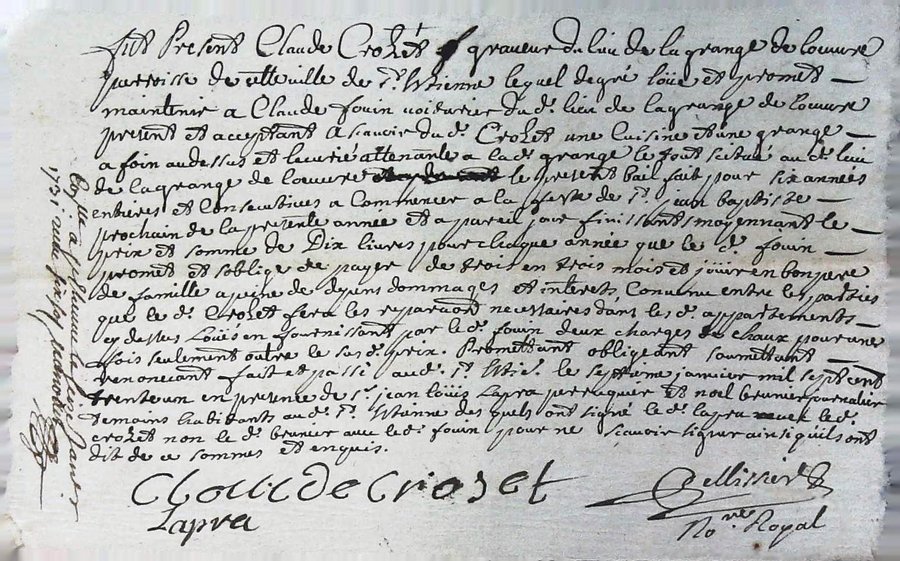 fut Present Claude Crozet graveur du lieu de la grange de Loeuvre
parroisse de de St. Etienne lequel de gré loüe et promet
maintenir a Claude fouin voiturier dud. lieu de lagrange de Loeuvre
present et acceptant A scavoir dud. Crozet une cuisine et une grange
a foin audessus et lecurie attenante a lad. grange le tout scitué aud. lieu
de lagrange de Loeuvre le present bail fait pour six années
entieres et consecutives a Commencer a la feste de St. jean baptiste
prochain de la presente année et a pareil jour finissants moyennant le
prix et somme de Dix livres pour chaque année que le d. fouin
promet et soblige de payer de trois en trois mois et joüir en bon pere
de famille a peine de dommages et interets Convenu entre les parties
que le d. Crozet fera les reparaons necessaires dans les d. appartements
cy dessus Loüés en fournissant par led. fouin deux charges de chaux pour une
fois seulement outre le susd. prix. Promettant obligeant soumettant
renonceant fait et passé aud. St. Etie. le septieme janvier mil sept cent
trente un en presence de sr. jean Loüis Lapra perruquier et noel brunier journalier
temoins habitants aud. St. Etienne des quels ont signé led. lapra avec led.
crozet non led. brunier avec led. fouin pour ne scavoir signer ainsi quils ont
dit de ce sommes et enquis.
Claude Crozet
Lapra
Pellissier
Nore. Royal
a St. Etienne le janvier
1731